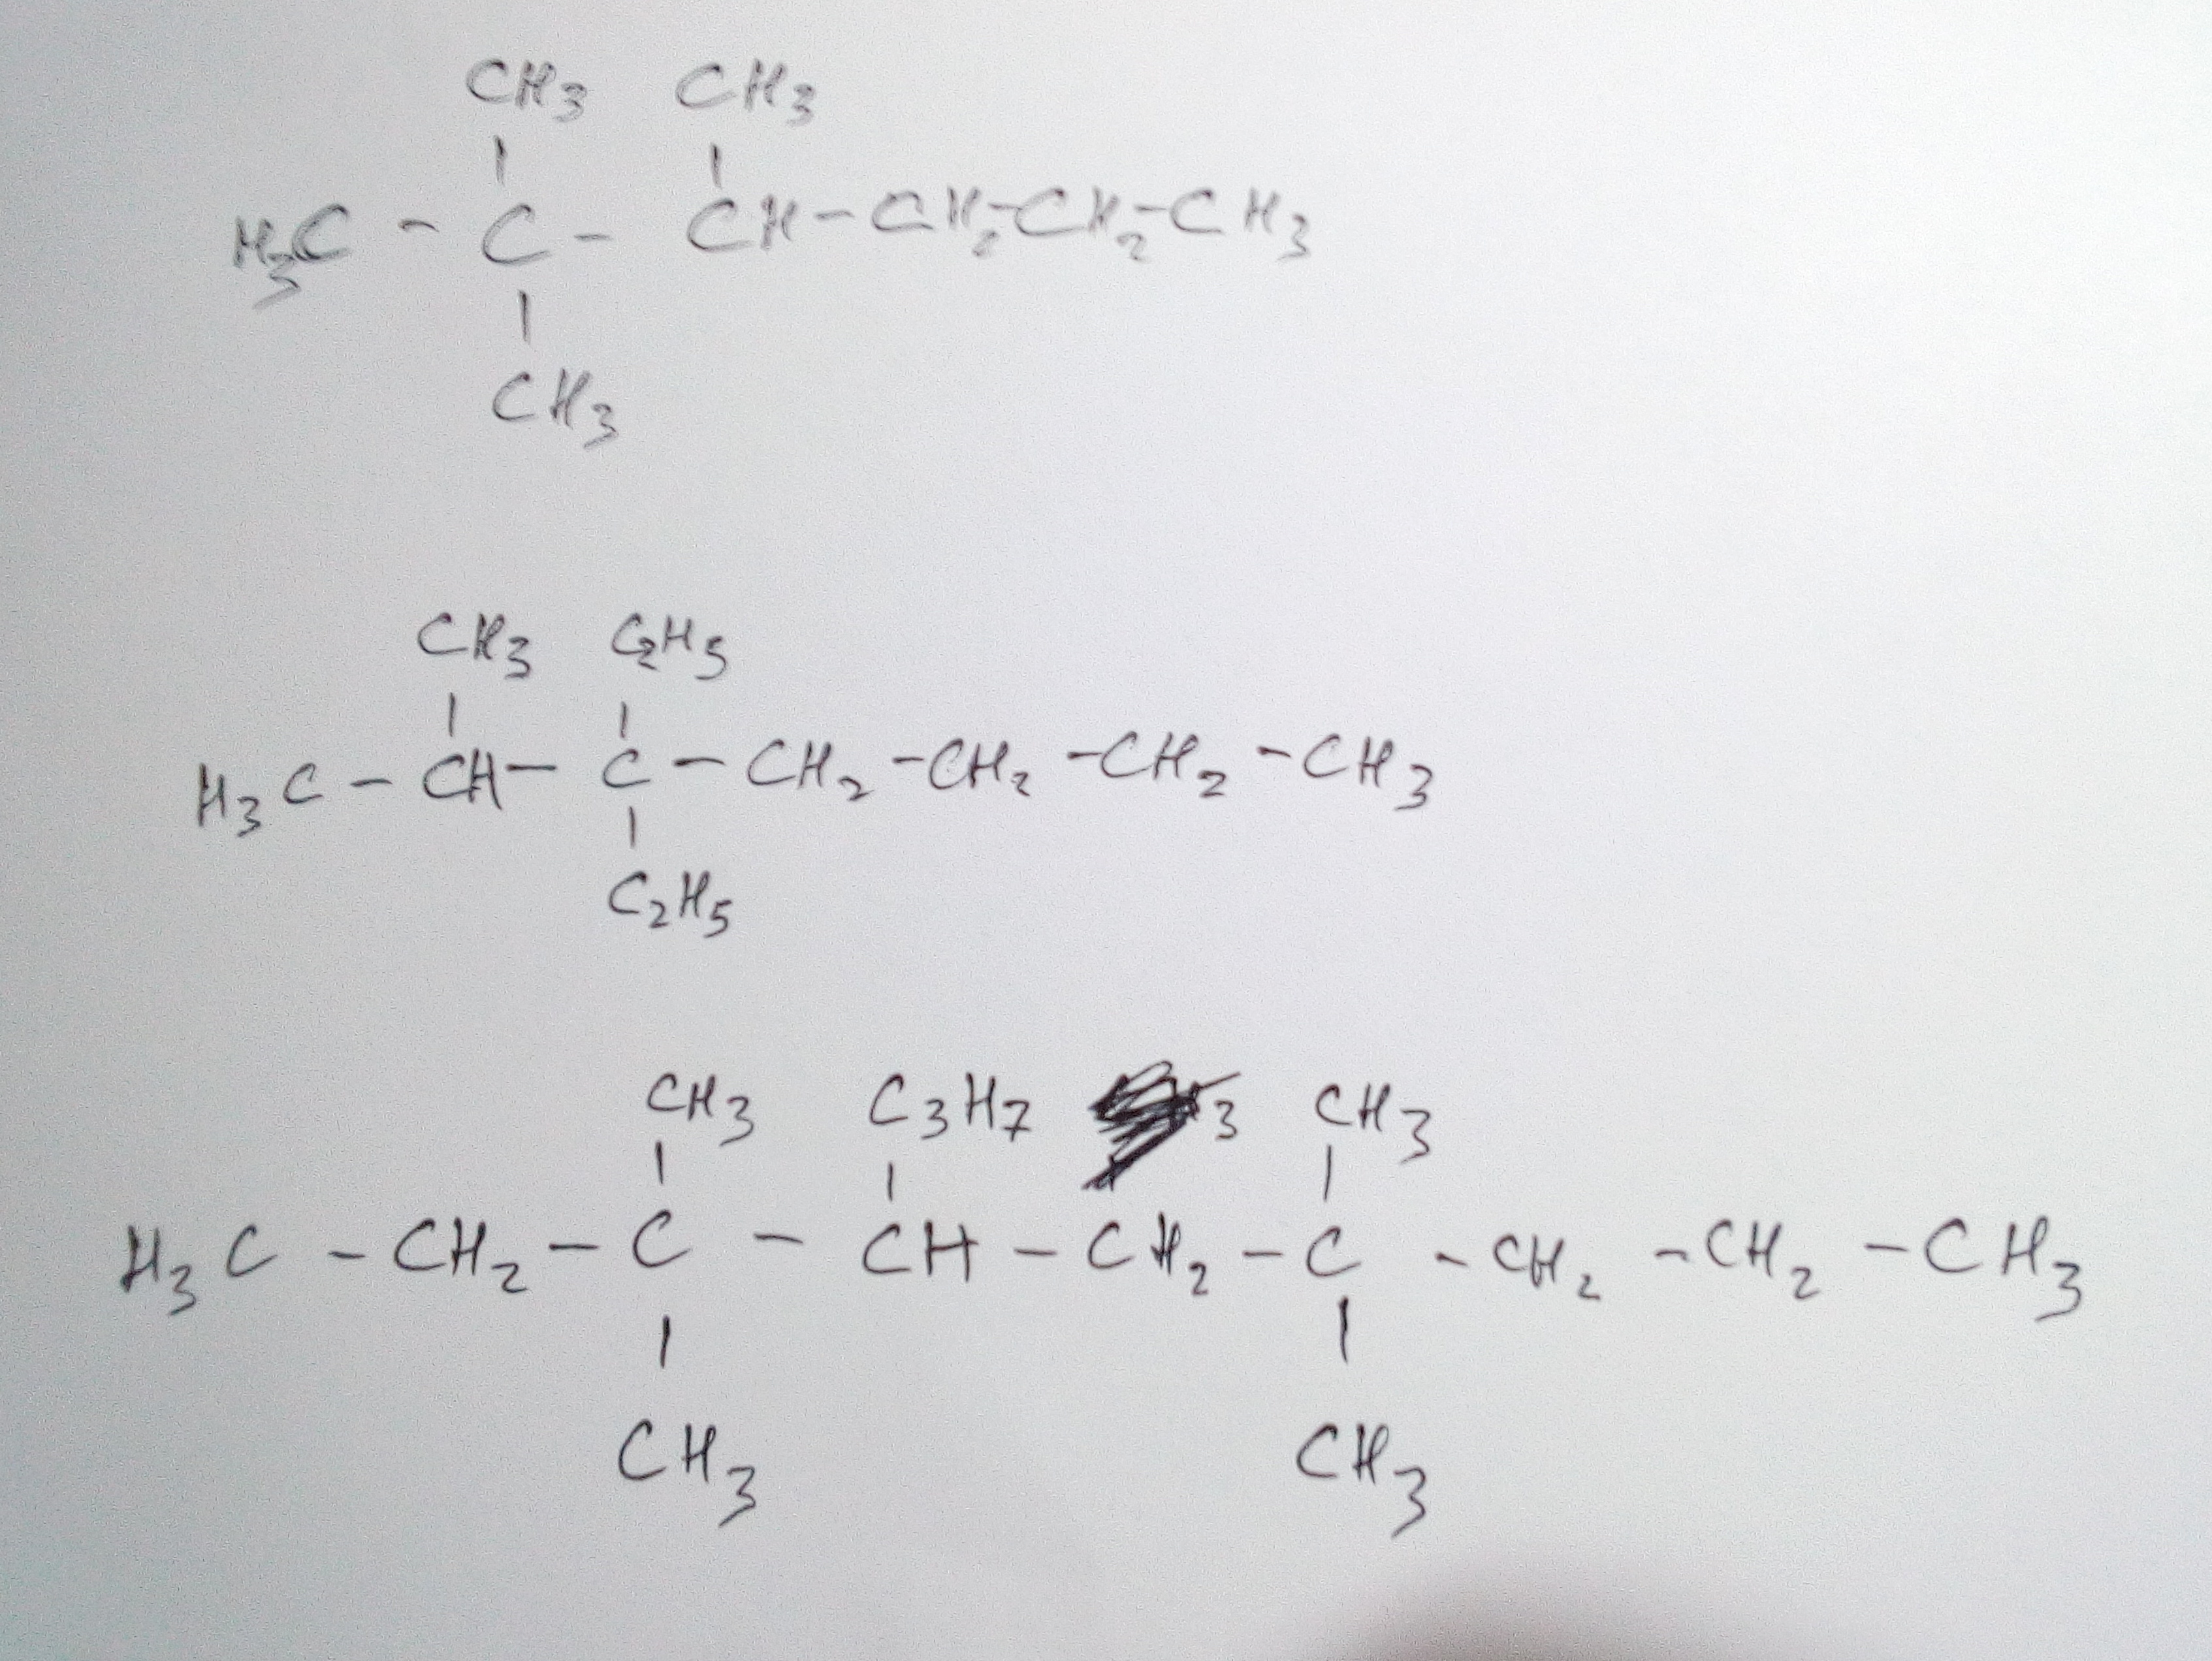 CH3 CH3
H3C - C - CH - CH2 - CH2 - CH3
CH3
CH3 C2H5
H3C - CH - C - CH2 - CH2 - CH2 - CH3
C2H5
CH3 C3H7 3 CH3
H3C - CH2 - C - CH - CH2 - C - CH2 - CH2 - CH3
CH3 CH3